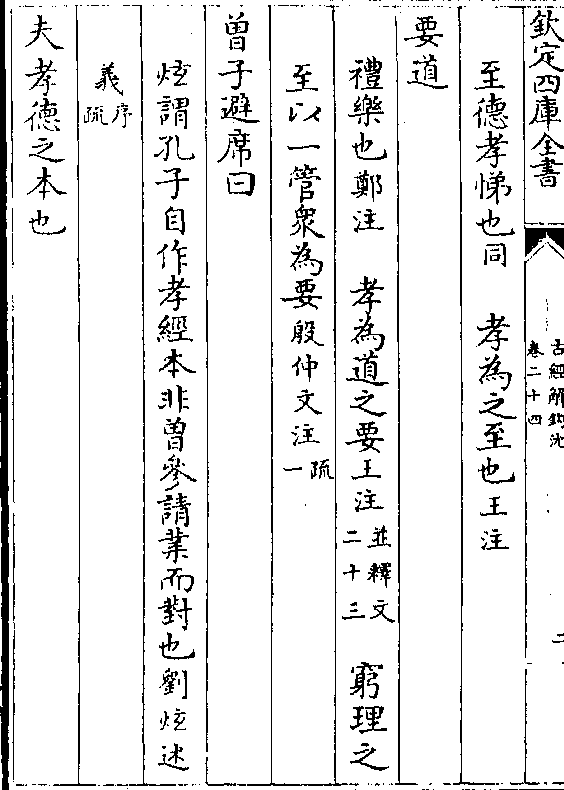 欽定四庫全書
古經解鈎沈
卷二十四
二
至德孝悌也同 孝為之至也王注
要道
禮樂也鄭注 孝為道之要王注並釋文二十三 窮理之
至以一管衆為要殷仲文注疏一
曾子避席曰
炫謂孔子自作孝經本非曾參請業而對也劉炫述
義序疏
夫孝德之本也